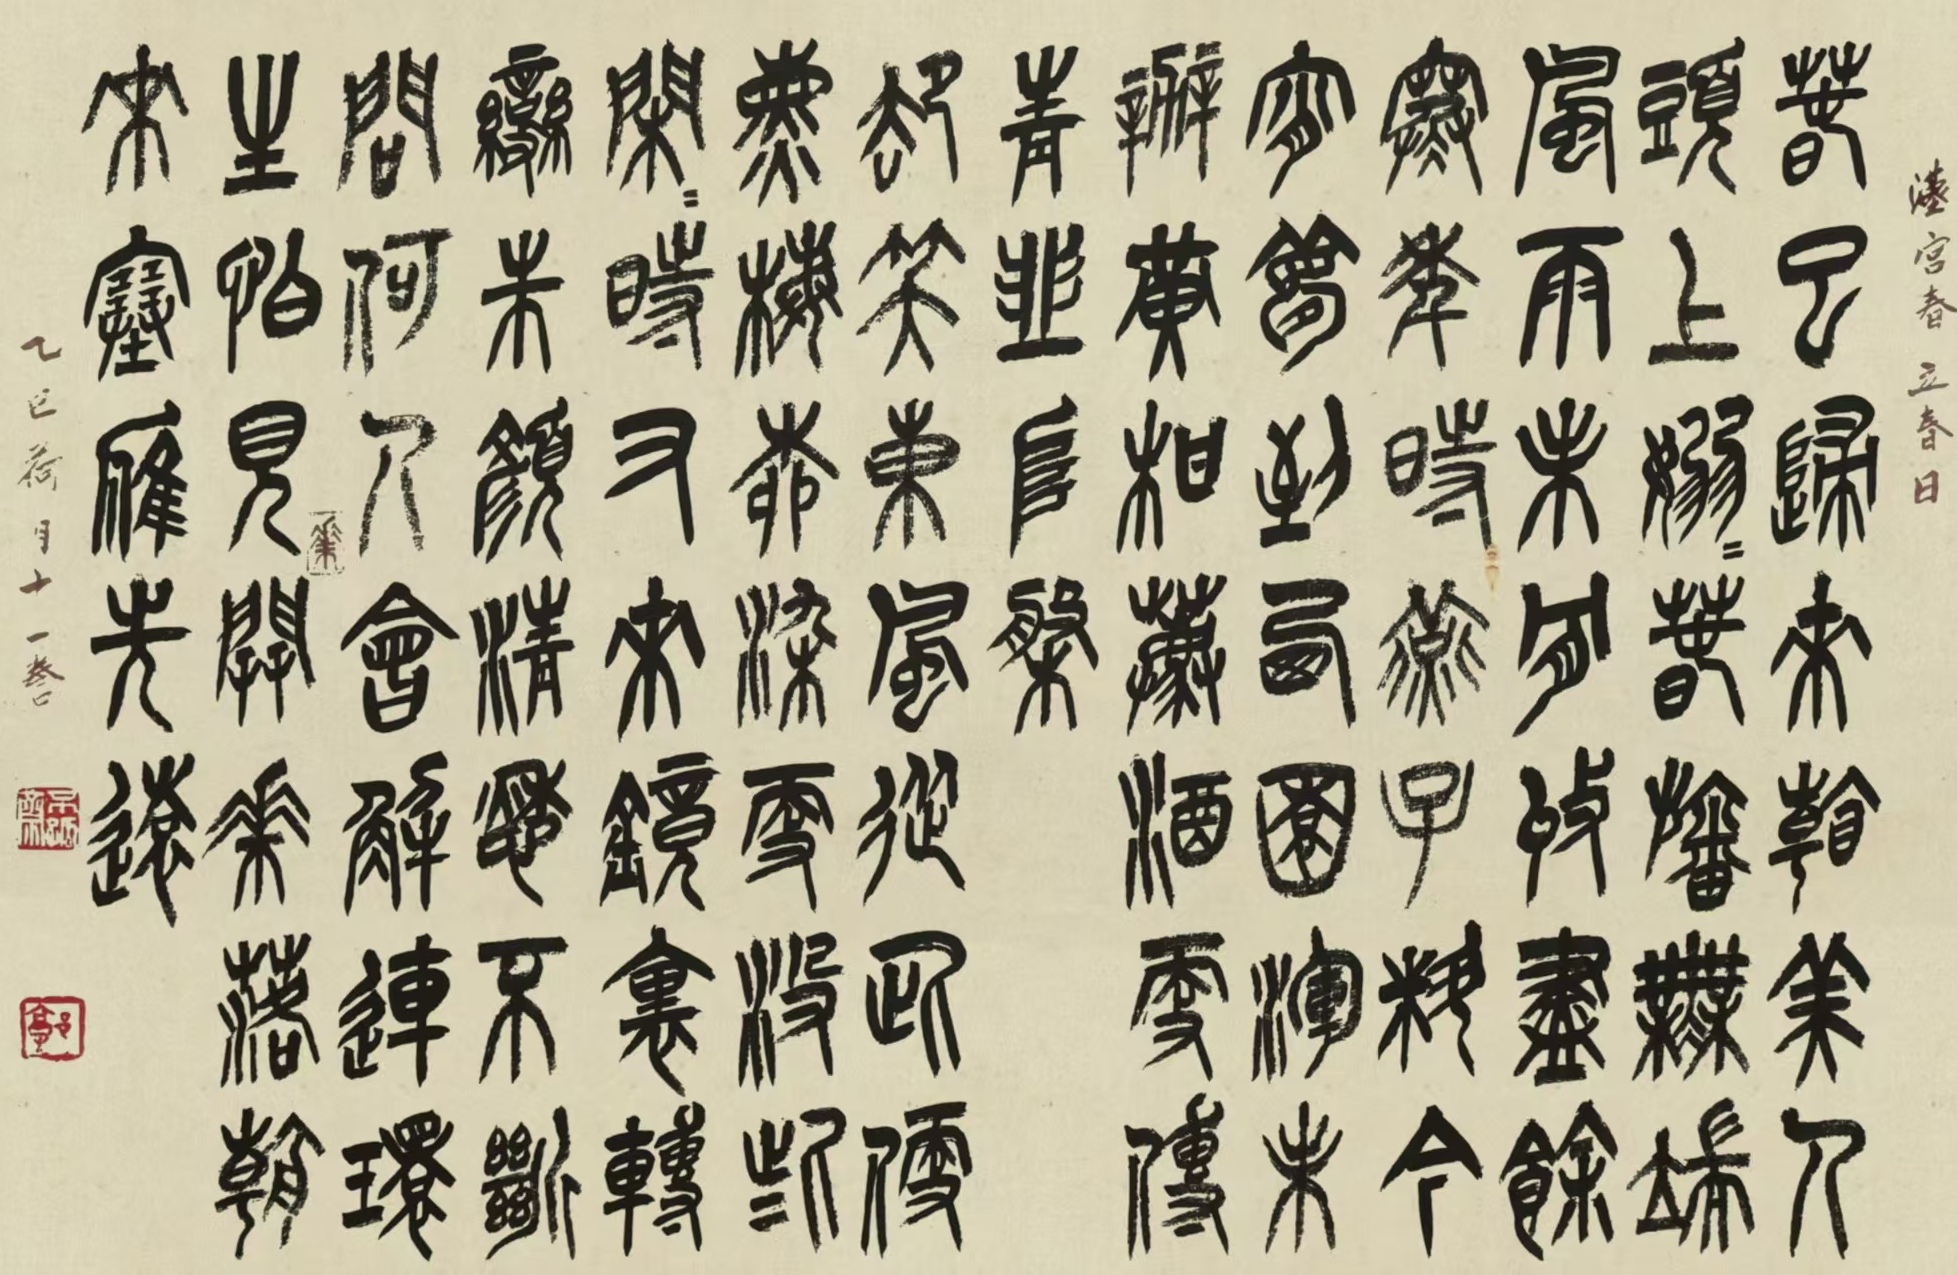 漢宮春 立春日
春已歸來看美人
頭上嫋〻春旛無端
風雨未肯收盡餘
寒年時燕子料今
宵夢到西園渾未
辦黃柑薦酒更傳
青韭堆盤
却笑東風從此便
熏梅柳染更沒些
閑〻時又來鏡裏轉
變朱顏清愁不斷
問何人會解連環
生怕見開花落朝
來塞雁先還
乙巳荷月十一